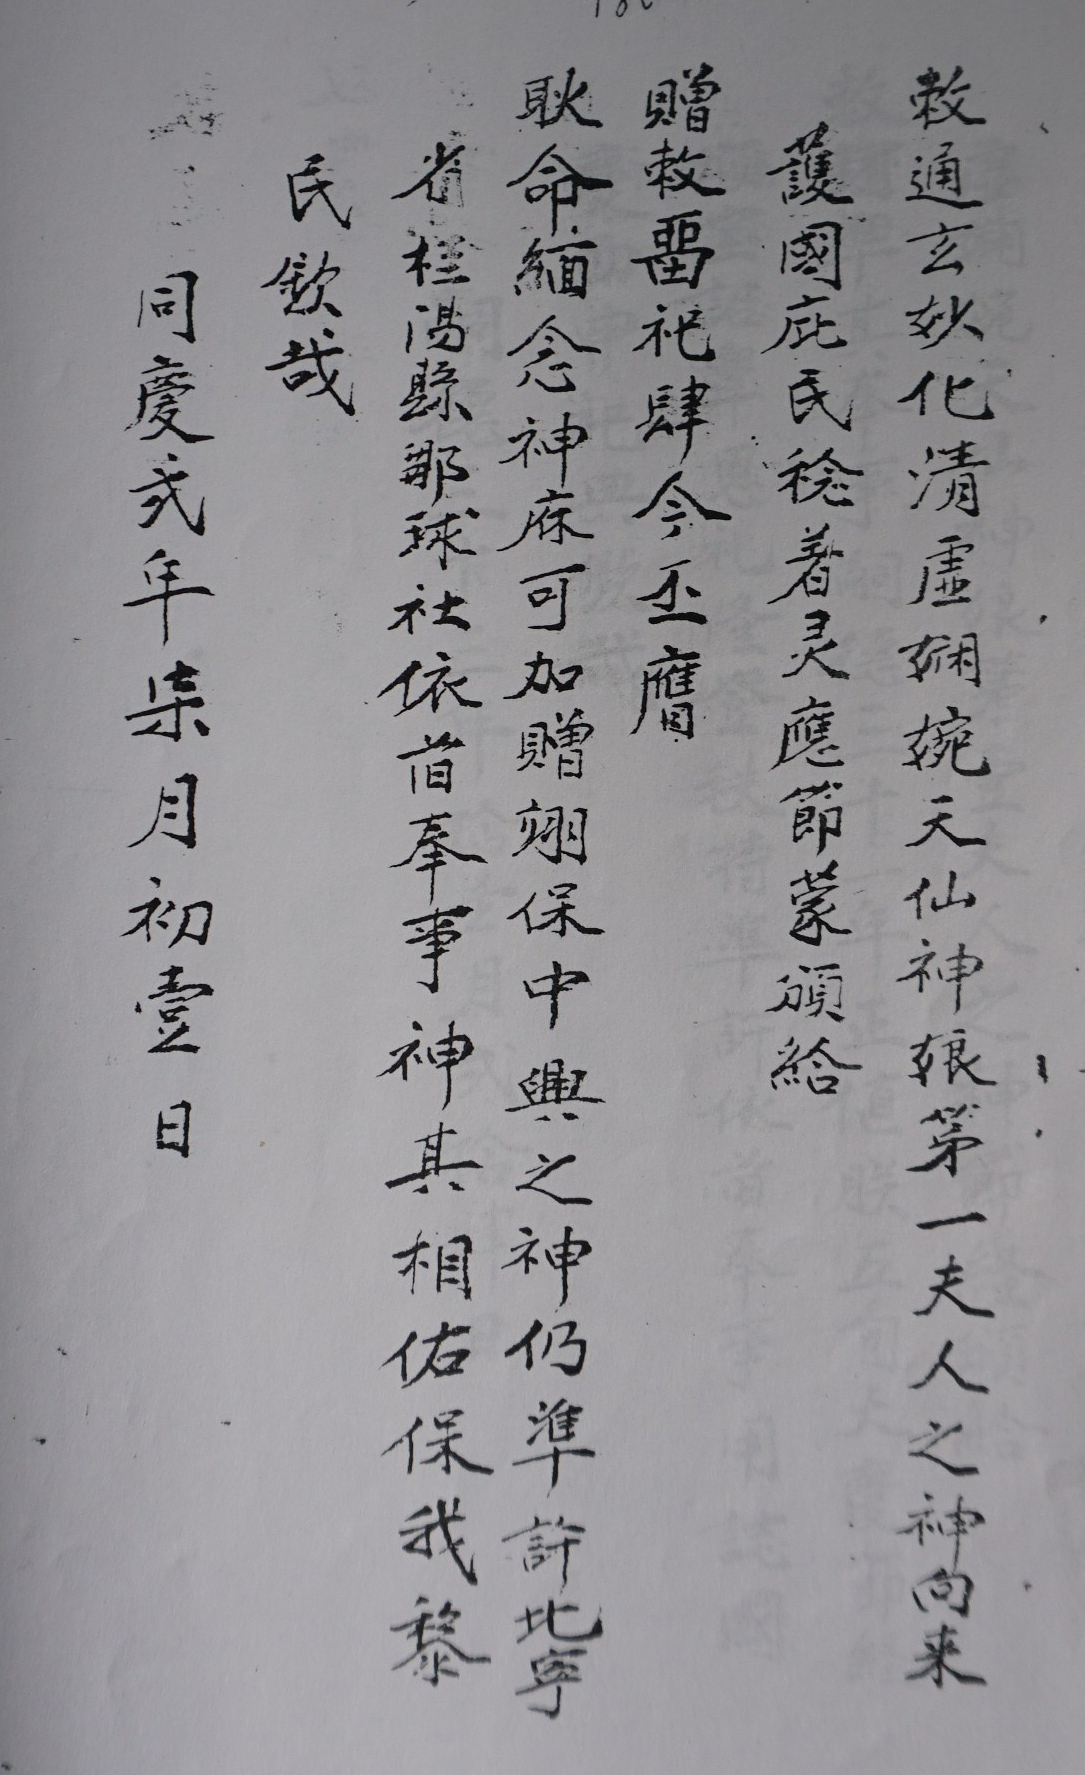 敕通玄妙化清虛嫻婉天仙神娘第一夫人之神向来
護國庇民稔著灵應節蒙頒給
贈敕畱祀肆今丕膺
耿命緬念神庥可加贈翊保中興之神仍準許北寧
省桂陽縣鄒球社依旧奉事神其相佑保我黎
民欽哉
同慶弍年柒月初壹日